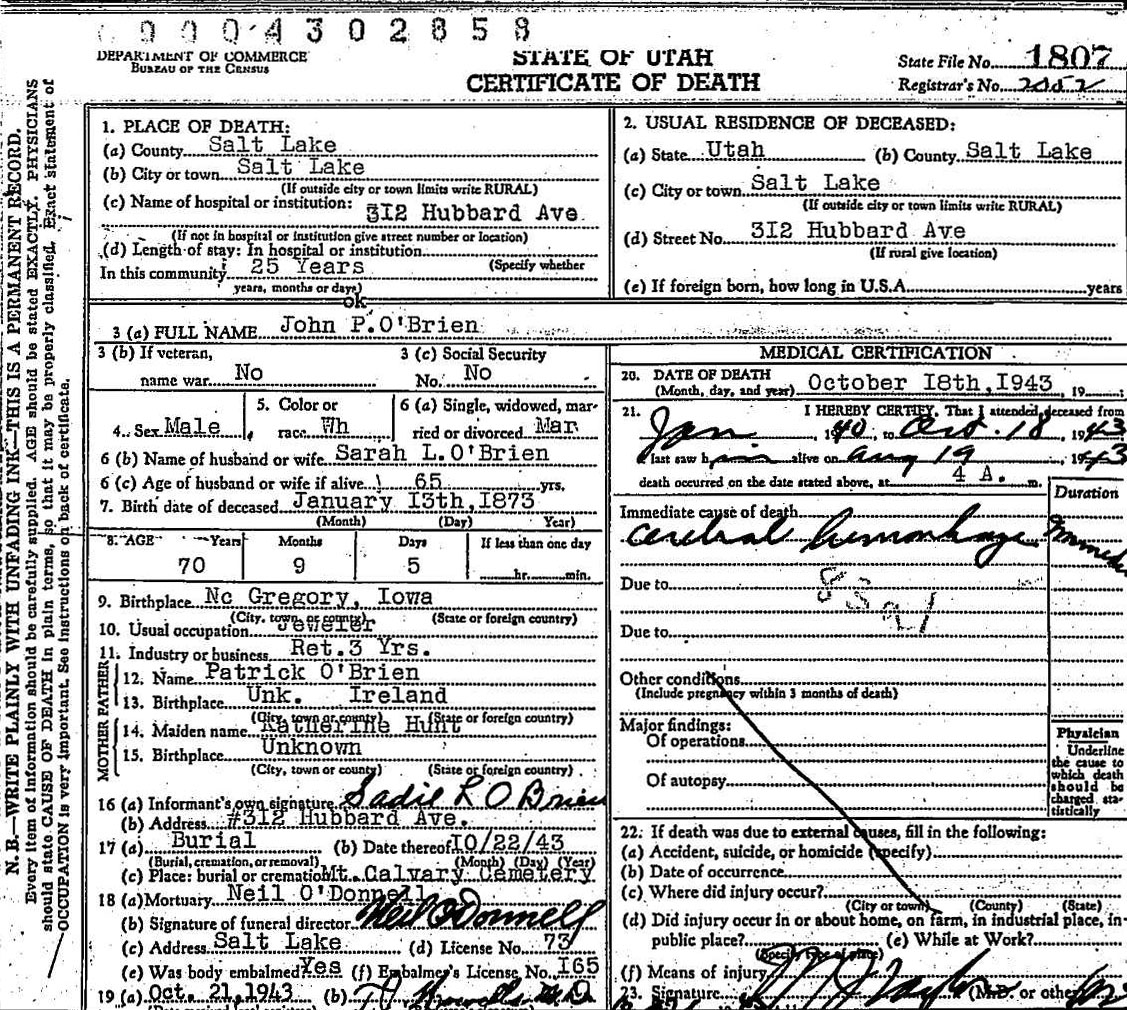 0004302858
DEPARTMENT OF COMMERCE
BUREAU OF THE CENSUS
STATE OF UTAH
CERTIFICATE OF DEATH
State File No. 1807
Registrar's No. 2052
N. B.—WRITE PLAINLY WITH UNFADING INK—THIS IS A PERMANENT RECORD.
Every item of information should be carefully supplied. AGE should be stated EXACTLY. PHYSICIANS
should state CAUSE OF DEATH in plain terms, so that it may be properly classified. Exact statement of
OCCUPATION is very important. See instructions on back of certificate.
1. PLACE OF DEATH:
(a) County Salt Lake
(b) City or town Salt Lake
(If outside city or town limits write RURAL)
(c) Name of hospital or institution: 312 Hubbard Ave.
(If not in hospital or institution give street number or location)
(d) Length of stay: In hospital or institution
(Specify whether
In this community 25 Years
years, months or days)
ok
2. USUAL RESIDENCE OF DECEASED:
(a) State Utah (b) County Salt Lake
(c) City or town Salt Lake
(If outside city or town limits write RURAL)
(d) Street No. 312 Hubbard Ave
(If rural give location)
(e) If foreign born, how long in U.S.A. years
3 (a) FULL NAME John P.O'Brien
3 (b) If veteran, name war No
3 (c) Social Security No. No
4. Sex Male
5. Color or race Wh
6 (a) Single, widowed, married or divorced Mar
6 (b) Name of husband or wife Sarah L.O'Brien
6 (c) Age of husband or wife if alive 65 yrs.
7. Birth date of deceased January 13th,1873
(Month) (Day) Year)
8. AGE Years Months Days If less than one day
70 9 5 hr. min.
9. Birthplace Nc Gregory, Iowa
(City, town, or county) (State or foreign country)
10. Usual occupation Jeweler
11. Industry or business Ret.3 Yrs.
FATHER
12. Name Patrick O'Brien
13. Birthplace Unk. Ireland
(City, town or county) (State or foreign country)
MOTHER
14. Maiden name Katherine Hunt
15. Birthplace Unknown
(City, town or county) (State or foreign country)
16 (a) Informant's own signature Sadie L O Brien
(b) Address #312 Hubbard Ave.
17 (a) Burial (b) Date thereof 10/22/43
(Burial, cremation, or removal) (Month) (Day) (Year)
(c) Place: burial or cremation Mt. Calvary Cemetery
18 (a) Mortuary Neil O'Donnell
(b) Signature of funeral director Neil O'Donnell
(c) Address Salt Lake (d) License No. 73
(e) Was body embalmed Yes (f) Embalmer's License No. 165
19 (a) Oct. 21,1943 (b)
MEDICAL CERTIFICATION
20. DATE OF DEATH
(Month, day, and year) October 18th,1943 19 ;
21. I HEREBY CERTIFY, That I attended deceased from
Jan , 1940, to Oct. 18, 1943
I last saw him alive on Aug 19, 1943
death occurred on the date stated above, at 4 A. m.
Duration
Immediate cause of death
cerebral hemorrhage
Due to
Due to
Other conditions
(Include pregnancy within 3 months of death)
Major findings:
Of operations
Of autopsy
Physician
Underline
the cause to
which death
should be
charged sta-
tistically
22. If death was due to external causes, fill in the following:
(a) Accident, suicide, or homicide (specify)
(b) Date of occurrence
(c) Where did injury occur?
(City or town) (County) (State)
(d) Did injury occur in or about home, on farm, in industrial place, in
public place? (e) While at Work?
(Specify type of place)
(f) Means of injury
23. Signature (M.D. or other)